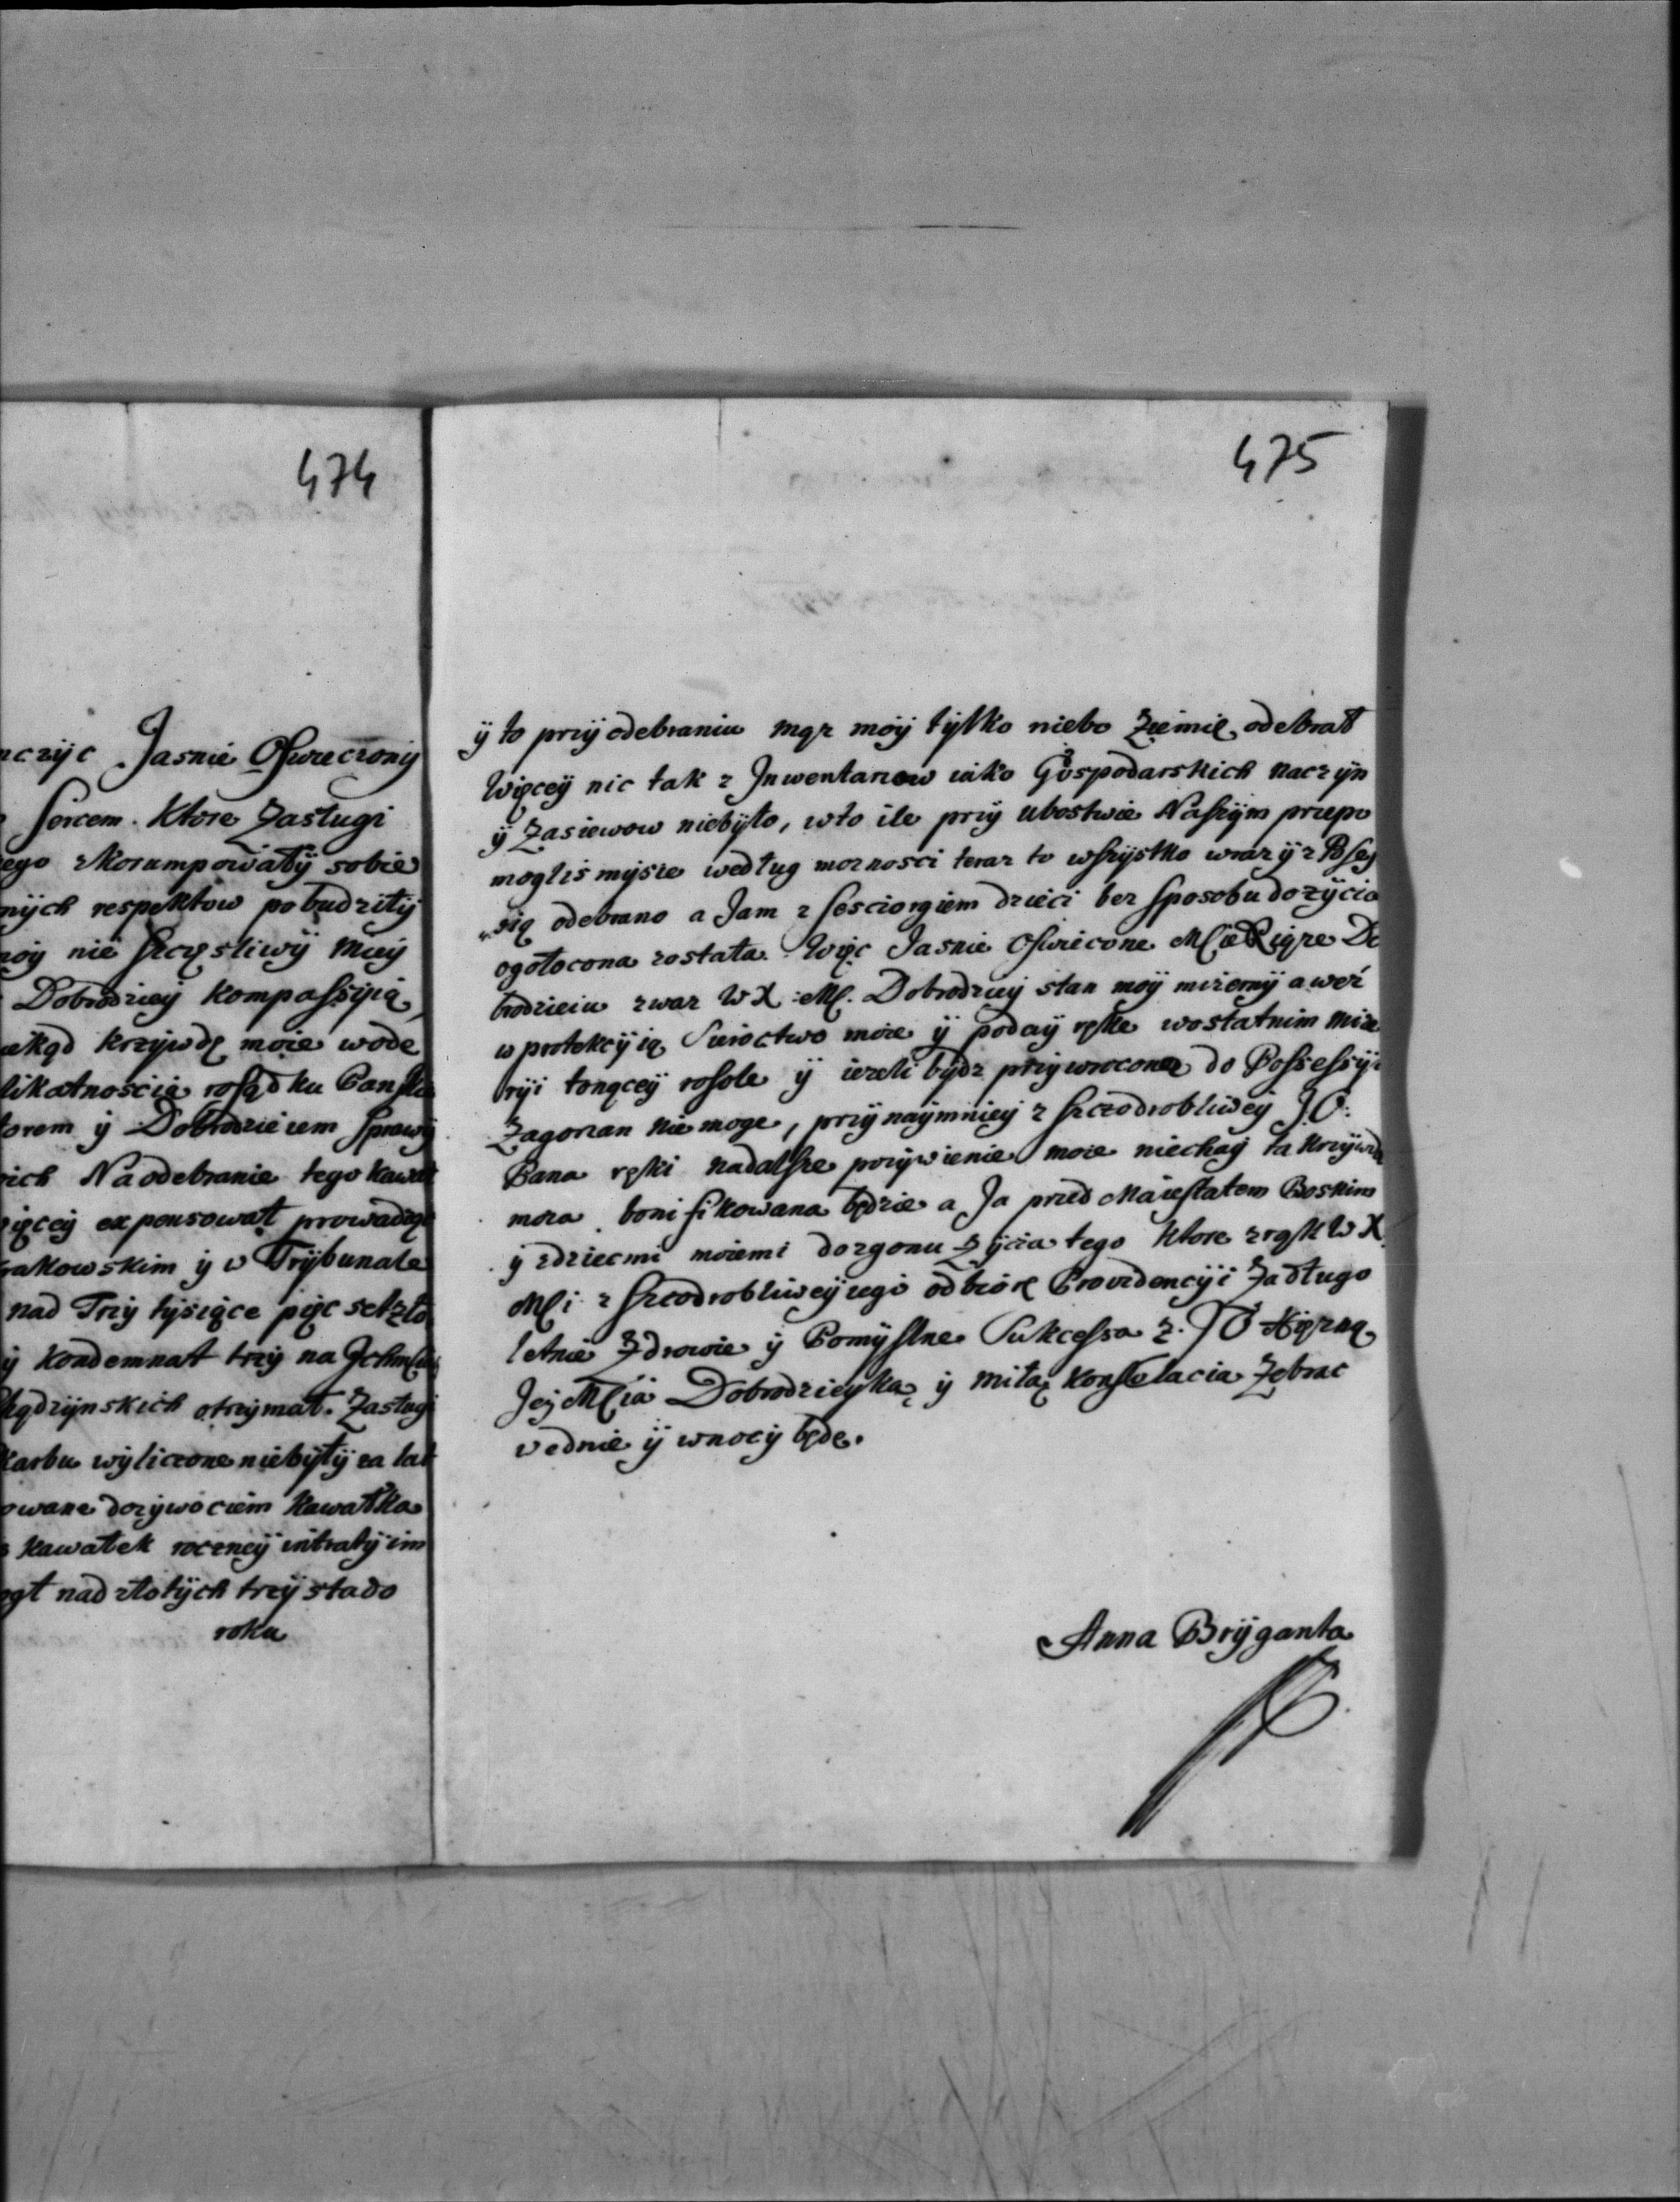 474
nczyc Jasnie Oswieczony
Sercem. Ktore Zasługi
ego skorumpowały sobie
nych respektow pobudziły
moy nie szczęsliwy Mąy
Dobrodziey kompassyią
krzywdę moie wode
likatnoscią rosądku Pansk
torem ÿ Dobrodzieiem sprawy
ich Na odebranie tego kawał
więcey expensował prowadzą
rakowskim ÿ w Trybunale
nad Trzy tysiące pięc set zło
ÿ kondemnat trzy na Jchm
ądzynskich otrzymał. Zasługi
karbu wyliczone niebyły za lat
owane dozywociem kawałka
kawałek roczney intraty im
ogł nad złotych trzysta do
roku
475
ÿ to przy odebraniu mąz moy tylko niebo Ziemie odebrał
Więcey nic tak z Jnwentarzow iako Gospodarskich naczyn
ÿ Zasiewow niebyło, wto ile przy ubostwie Naszym przepo
moglismysie według moznosci teraz to wszystko wraz ÿ z Posses
sią odebrano a Jam z sesciorgiem dzieci bez sposobu do zycia
ogołocona została. Więc Jasnie Oswiecone Mcie Xiąze Do
brodzieiu zwaz W X: Mc. Dobrodziey stan moy mizerny a weź
w protekcyią Sieroctwo moie ÿ poday rękę wostatnim mize
ryi tonącey rosole ÿ iezeli bydz przywrocona do Possessyi
Zagorzan nie moge, przynaymniey z szczodrobliwey J O:
Pana ręki nadalsze pozywienie moie niechay ta krzywda
moia bonifikowana będzie a Ja przed Maiestatem Boskim
ÿ zdziecmi moiemi dozgonu Zycia tego ktore z rąk W X
Mci z szczodrobliwey iego odbiorę Prowidencyi Za długo
letnie Zdrowie ÿ Pomyslne Sukcessa Z. J O Xięzną
Jey Mcią Dobrodzieyką ÿ miłą konsolacią Zebrac
vednie ÿ wnocy będę.
Anna Bryganta